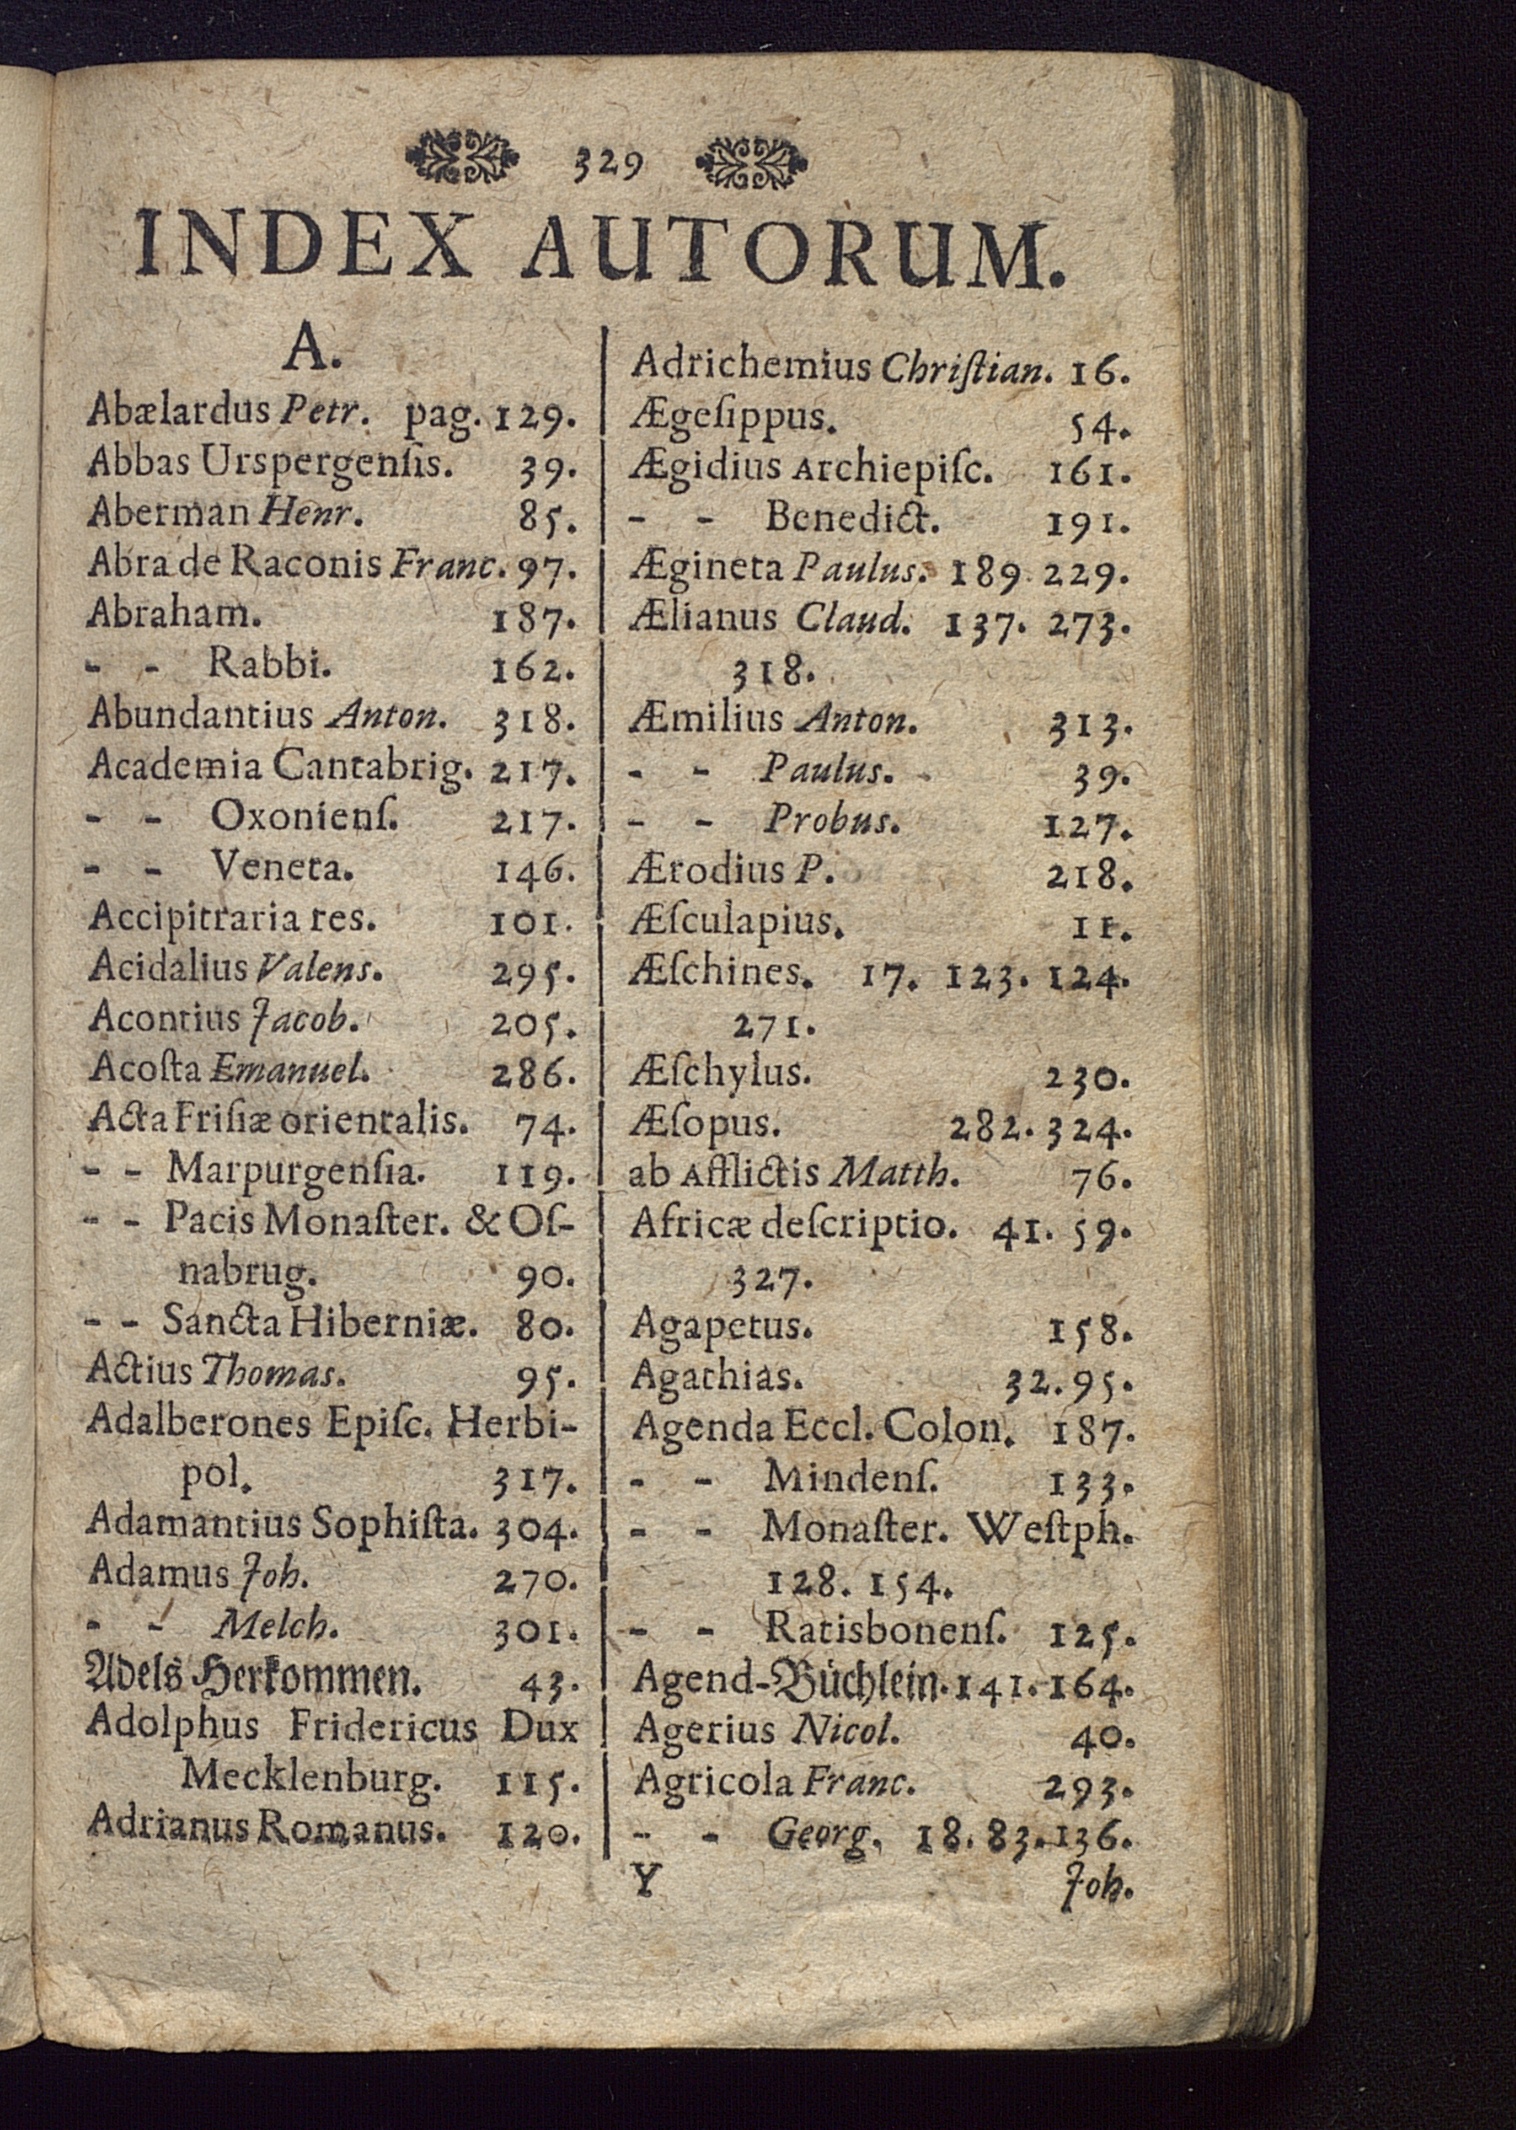 329
INDEX AUTORUM.
A.
Abælardus Petr. pag. 129.
Abbas Urspergenſis. 39.
Aberman Henr. 85.
Abra de Raconis Franc. 97.
Abraham. 187.
- - Rabbi. 162.
Abundantius Anton. 318.
Academia Cantabrig. 217.
- - Oxonienſ. 217.
- - Veneta. 146.
Accipitraria res. 101.
Acidalius Valens. 295.
Acontius Jacob. 205.
Acoſta Emanuel. 286.
Acta Friſiæ orientalis. 74.
- - Marpurgenſia. 119.
- - Pacis Monaſter. & Oſ-
nabrug. 90.
- - Sancta Hiberniæ. 80.
Actius Thomas. 95.
Adalberones Epiſc. Herbi-
pol. 317.
Adamantius Sophiſta. 304.
Adamus Joh. 270.
- - Melch. 301.
Adels Herkommen. 43.
Adolphus Fridericus Dux
Mecklenburg. 115.
Adrianus Romanus. 120.
Adrichemius Chriſtian. 16.
Ægeſippus. 54.
Ægidius Archiepiſc. 161.
- - Benedict. 191.
Ægineta Paulus. 189. 229.
Ælianus Claud. 137. 273.
318.
Æmilius Anton. 313.
- - Paulus. 39.
- - Probus. 127.
Ærodius P. 218.
Æſculapius. 11.
Æſchines. 17. 123. 124.
271.
Æſchylus. 230.
Æſopus. 282. 324.
ab Afflictis Matth. 76.
Africæ deſcriptio. 41. 59.
327.
Agapetus. 158.
Agathias. 32. 95.
Agenda Eccl. Colon. 187.
- - Mindenſ. 133.
- - Monaſter. Weſtph.
128. 154.
- - Ratisbonenſ. 125.
Agend-Büchlein. 141. 164.
Agerius Nicol. 40.
Agricola Franc. 293.
- - Georg. 18. 83. 136.
Y Joh.